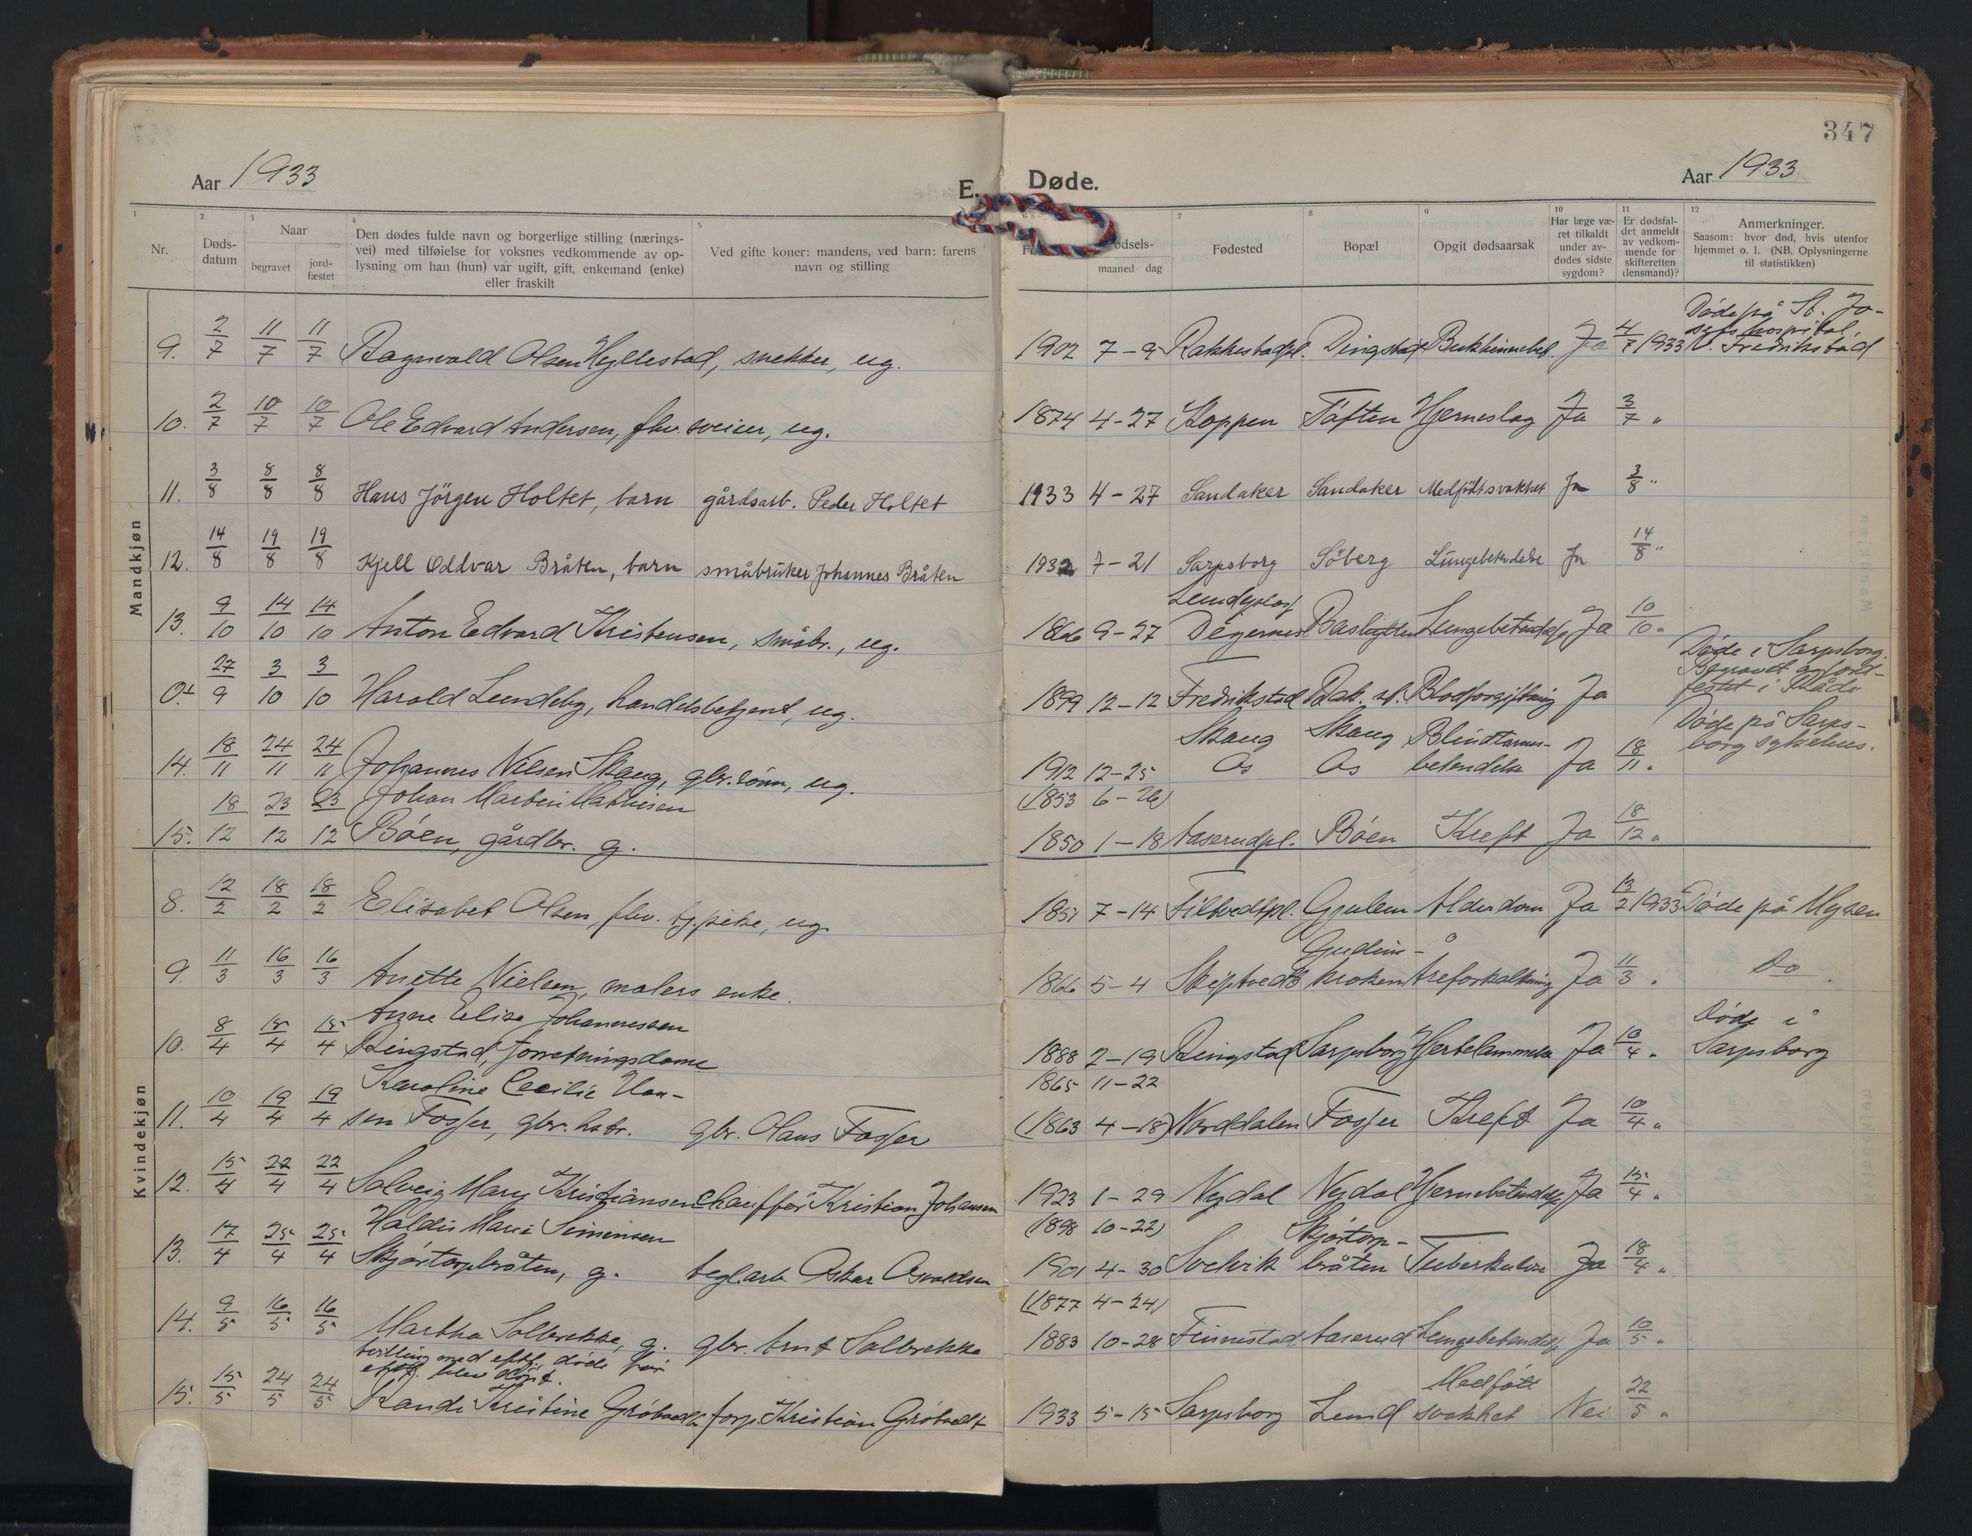 347
Aar 1933 E. Døde. Aar 1933
1 2 3 4 5 7 8 9 10 11 12
Nr. Døds-datum Naar begravet jord-fæstet Den dødes fulde navn og borgerlige stilling (nærings-vei) med tilføielse for voksnes vedkommende av op-lysning om han (hun) var ugift, gift, enkemand (enke) eller fraskilt Ved gifte koner: mandens, ved barn: farens navn og stilling maaned dag Fødested Bopæl Opgit dødsaarsak Har læge væ-ret tilkaldt under av-dødes sidste sygdom? Er dødsfal-det anmeldt av vedkom-mende for skifteretten (lensmand)? Anmerkninger. Saasom: hvor død, hvis utenfor hjemmet o. l. (NB. Oplysningerne til statistikken)
Mandkjøn
9. 2/7 11/7 11/7 Ragnvald Olsen Hyllestad, snekker, ug. 1902 7-9 Rakkestadpl. Ja 4/7 1933 Døde på St. Jo-
sefs hospital,
Fredrikstad
10. 2/7 10/7 10/7 Ole Edvard Andersen, fhv. sveiser, ug. 1874 4-27 Koppen Toften Hjerneslag Ja 3/7 "
11. 3/8 8/8 8/8 Hans Jörgen Holtet, barn gårdsarb. Peder Holtet 1933 4-27 Sandaker Sandaker Medfödt svakhet Ja 3/8 "
12. 14/8 19/8 19/8 Kjell Oddvar Bråten, barn småbruker Johannes Bråten 1932 7-21 Sarpsborg Söberg Lungebetendelse Ja 14/8 "
13. 9/10 14/10 14/10 Anton Edvard Kristensen, småbr., ug. 1866 9-27 Degernes Lungebetendelse Ja 10/10 "
0+ 27/9 3/10 3/10 Harald Lundeby, handelsbetjent, ug. 1899 12-12 Fredrikstad Rak. st. Blodforgiftning Ja Døde i Sarpsborg.
Begravet og jord-
festet i Råde
14. 18/11 24/11 24/11 Johannes Nilsen Skaug, gbr. sønn, ug. 1912 12-25 Skaug
Os Skaug
Os Blindtarms-
betendelse Ja 18/11 " Døde på Sarps-
borg sykehus.
(1853 6-26)
15. 18/12 23/12 23/12 Johan Martin Mathisen
Bøen, gårdbr. g. 1850 1-18 Aaserudpl. Bøen Kreft Ja 18/12 "
Kvindekjøn
8. 12/2 18/2 18/2 Elisabet Olsen, fhv. tj. pike, ug. 1851 7-14 Filtvedtpl. Gjulem Alderdom Ja 13/2 1933 Døde på Mysen
9. 11/3 16/3 16/3 Anette Nielsen, malers enke. 1866 5-4 Skiptvedt Gudim-
kroken Åreforkalkning Ja 11/3 " Do
10. 8/4 15/4 15/4 Anne Elise Johannessen
Ringstad, forretningsdame 1888 2-19 Ringstad Sarpsborg Hjertelammelse Ja 10/4 " Døde i
Sarpsborg
1865 11-22
11. 10/4 19/4 19/4 Karoline Cecilie Han-
sen Fosser, gbr. hstr. gbr. Olaus Fosser (1863 4-18) Norddalen Fosser Kreft Ja 10/4 "
12. 15/4 22/4 22/4 Solveig Mary Kristiansen chauffør Kristian Johansen 1923 1-29 Nydal Nydal Hjernebetendelse Ja 15/4 "
(1898 10-22)
13. 17/4 25/4 25/4 Haldis Marie Simensen
Skjørtorpbråten, g. teglarb. Oskar Osvaldsen 1901 4-30 Svelvik Skjørtorp-
bråten Tuberkulose Ja 18/4 "
(1877 4-24)
14. 9/5 16/5 16/5 Martha Solbrekke, g. gbr. Arnt Solbrekke 1883 10-28 Finnestad Aaserud Lungebetendelse Ja 10/5 "
tvilling med eftf. døde før
eftf. blev døpt.
15. 15/5 24/5 24/5 Randi Kristine Grøtvedt forp. Kristian Grøtvedt 1933 5-15 Sarpsborg Lund Medfødt
svakhet Nei 22/5 "